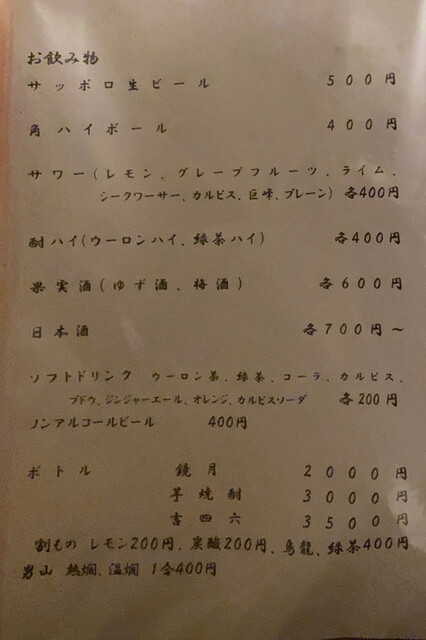 お飲み物
サッポロ生ビール 500円
角ハイボール 400円
サワー(レモン、グレープフルーツ、ライム、
シークワーサー、カルピス、巨峰、プレーン) 各400円
酎ハイ(ウーロンハイ、緑茶ハイ) 各400円
果実酒(ゆず酒、梅酒) 各600円
日本酒 各700円〜
ソフトドリンク ウーロン茶、緑茶、コーラ、カルピス、
ブドウ、ジンジャーエール、オレンジ、カルピスソーダ 各200円
ノンアルコールビール 400円
ボトル 鏡月 2000円
芋焼酎 3000円
吉四六 3500円
割もの レモン200円、炭酸200円、烏龍、緑茶400円
男山 熱燗、温燗 1合400円